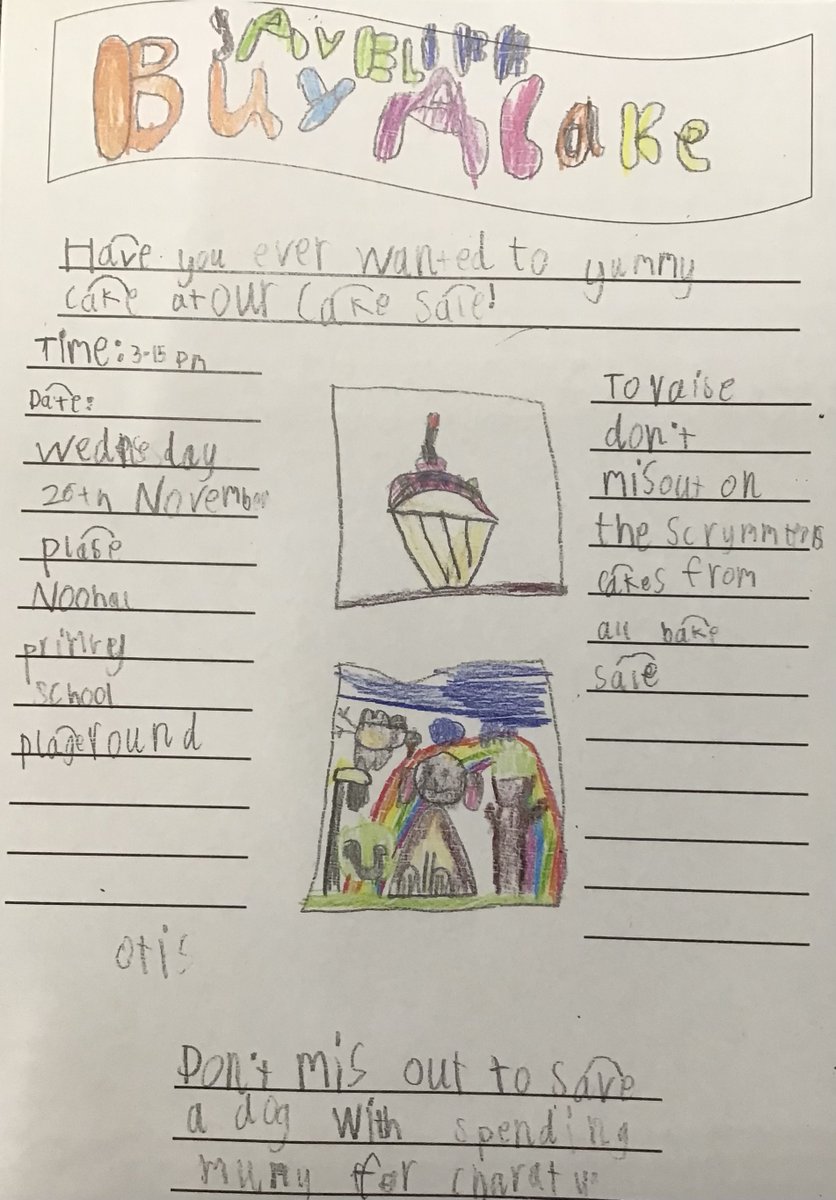 SAVE LIFE
Buy A Cake
Have you ever wanted to yummy
cake at our cake sale!
Time: 3-15 pm
Date:
Wednesday
26th November
plase
Noohal
primrey
school
playeround
To raise
don't
misout on
the scrymmters
cakes from
all bake
sale
otis
Don't mis out to save
a dog with spending
muny for charaty